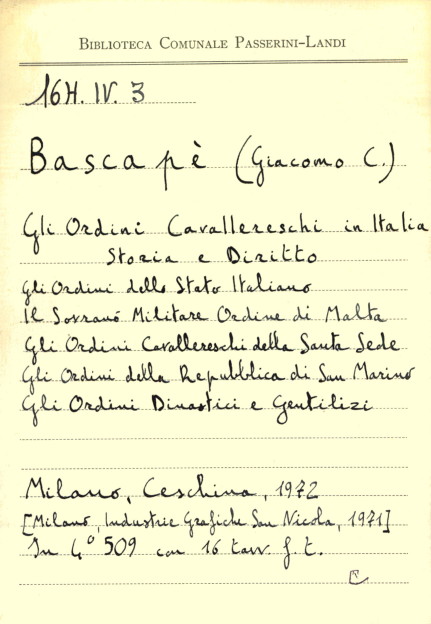 Biblioteca Comunale Passerini-Landi
16H. IV. 3
Bascapè (Giacomo C.)
Gli Ordini Cavallereschi in Italia
Storia e Diritto
Gli Ordini dello Stato Italiano
Il Sovrano Militare Ordine di Malta
Gli Ordini Cavallereschi della Santa Sede
Gli Ordini della Repubblica di San Marino
Gli Ordini Dinastici e Gentilizi
Milano, Ceschina, 1972
[Milano, Industrie Grafiche San Nicola, 1971]
In 4° 509 con 16 tavv. f. t.